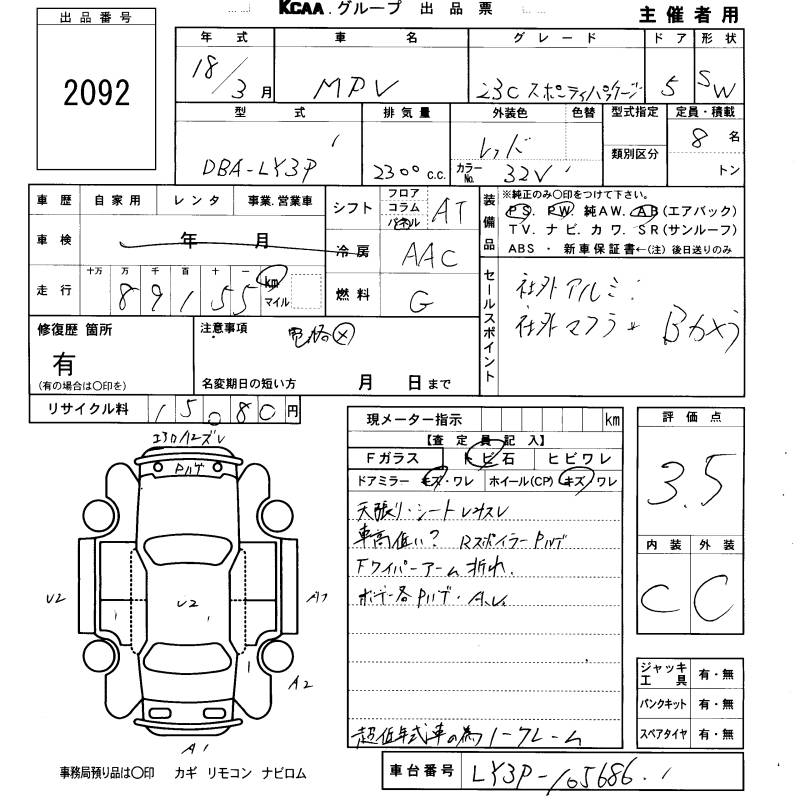 出品番号
2092
KCAA.グループ 出品票
主催者用
年式 車名 グレード ドア 形状
18/3月 MPV 23C スポーティパッケージ 5 SW
型式 排気量 外装色 色替 型式指定 定員・積載
類別区分
DBA-LY3P 2300c.c. レッド 8名
カラーNo. 32V トン
車歴 自家用 レンタ 事業.営業車
車検 年 月
走行 十万 万 千 百 十 一
89155 km マイル
シフト フロア コラム パネル AT
冷房 AAC
燃料 G
装備品
※純正のみ〇印をつけて下さい。
PS. PW. 純AW. AB(エアバック)
TV. ナビ. カワ. SR(サンルーフ)
ABS ・ 新車保証書←(注) 後日送りのみ
セールスポイント
社外アルミ
社外マフラー Bカメラ
修復歴 箇所
有
(有の場合は〇印を)
注意事項
電格(×)
名変期日の短い方 月 日まで
リサイクル料 15080円
現メーター指示 km
【査定員記入】
Fガラス トビ石 ヒビワレ
ドアミラー キズ・ワレ ホイール(CP) キズ/ワレ
天張り・シート
車高低い? Rスポイラー Pハゲ
Fワイパーアーム折れ.
ボデー各Pハゲ・A.U.
超低年式車の為ノークレーム
評価点
3.5
内装 外装
C C
ジャッキ 工具 有・無
パンクキット 有・無
スペアタイヤ 有・無
Pハゲ
U2
U2
A2
A1
事務局預り品は〇印 カギ リモコン ナビロム
車台番号 LY3P-105686